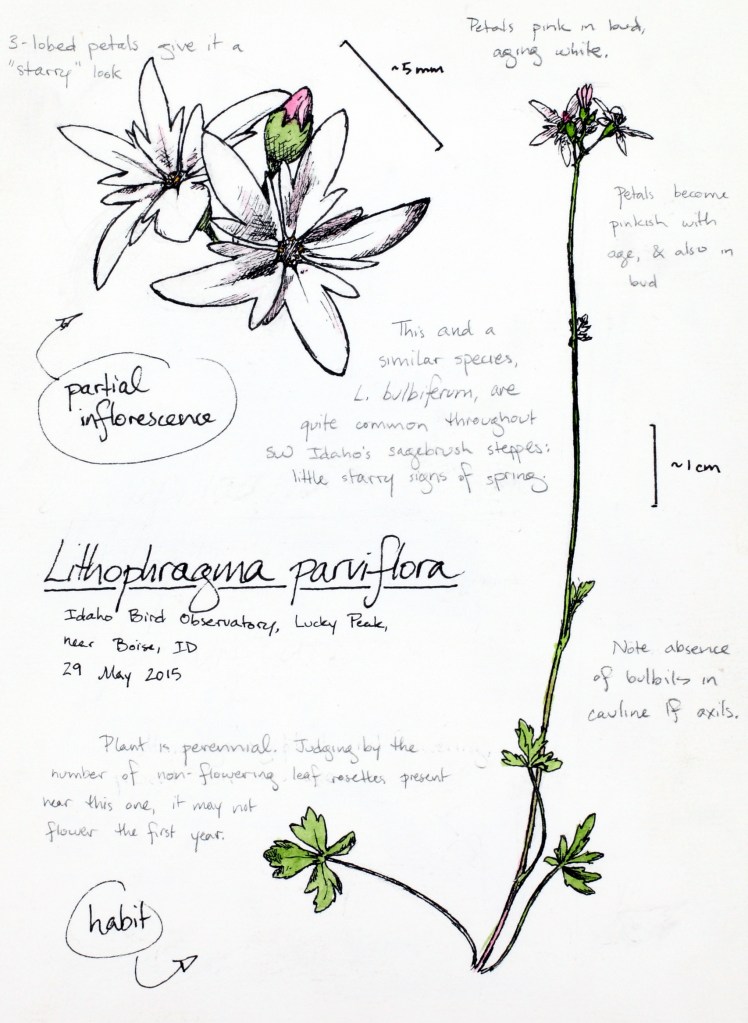 3-lobed petals give it a
"starry" look
~5mm
Petals pink in bud,
aging white.
Petals become
pinkish with
age, & also in
bud
This and a
similar species,
L. bulbiferum, are
quite common throughout
SW Idaho's sagebrush steppes:
little starry signs of spring.
partial
inflorescence
~1cm
Lithophragma parviflora
Idaho Bird Observatory, Lucky Peak,
near Boise, ID
29 May 2015
Note absence
of bulbils in
cauline lf axils.
Plant is perennial. Judging by the
number of non-flowering leaf rosettes present
near this one, it may not
flower the first year.
habit